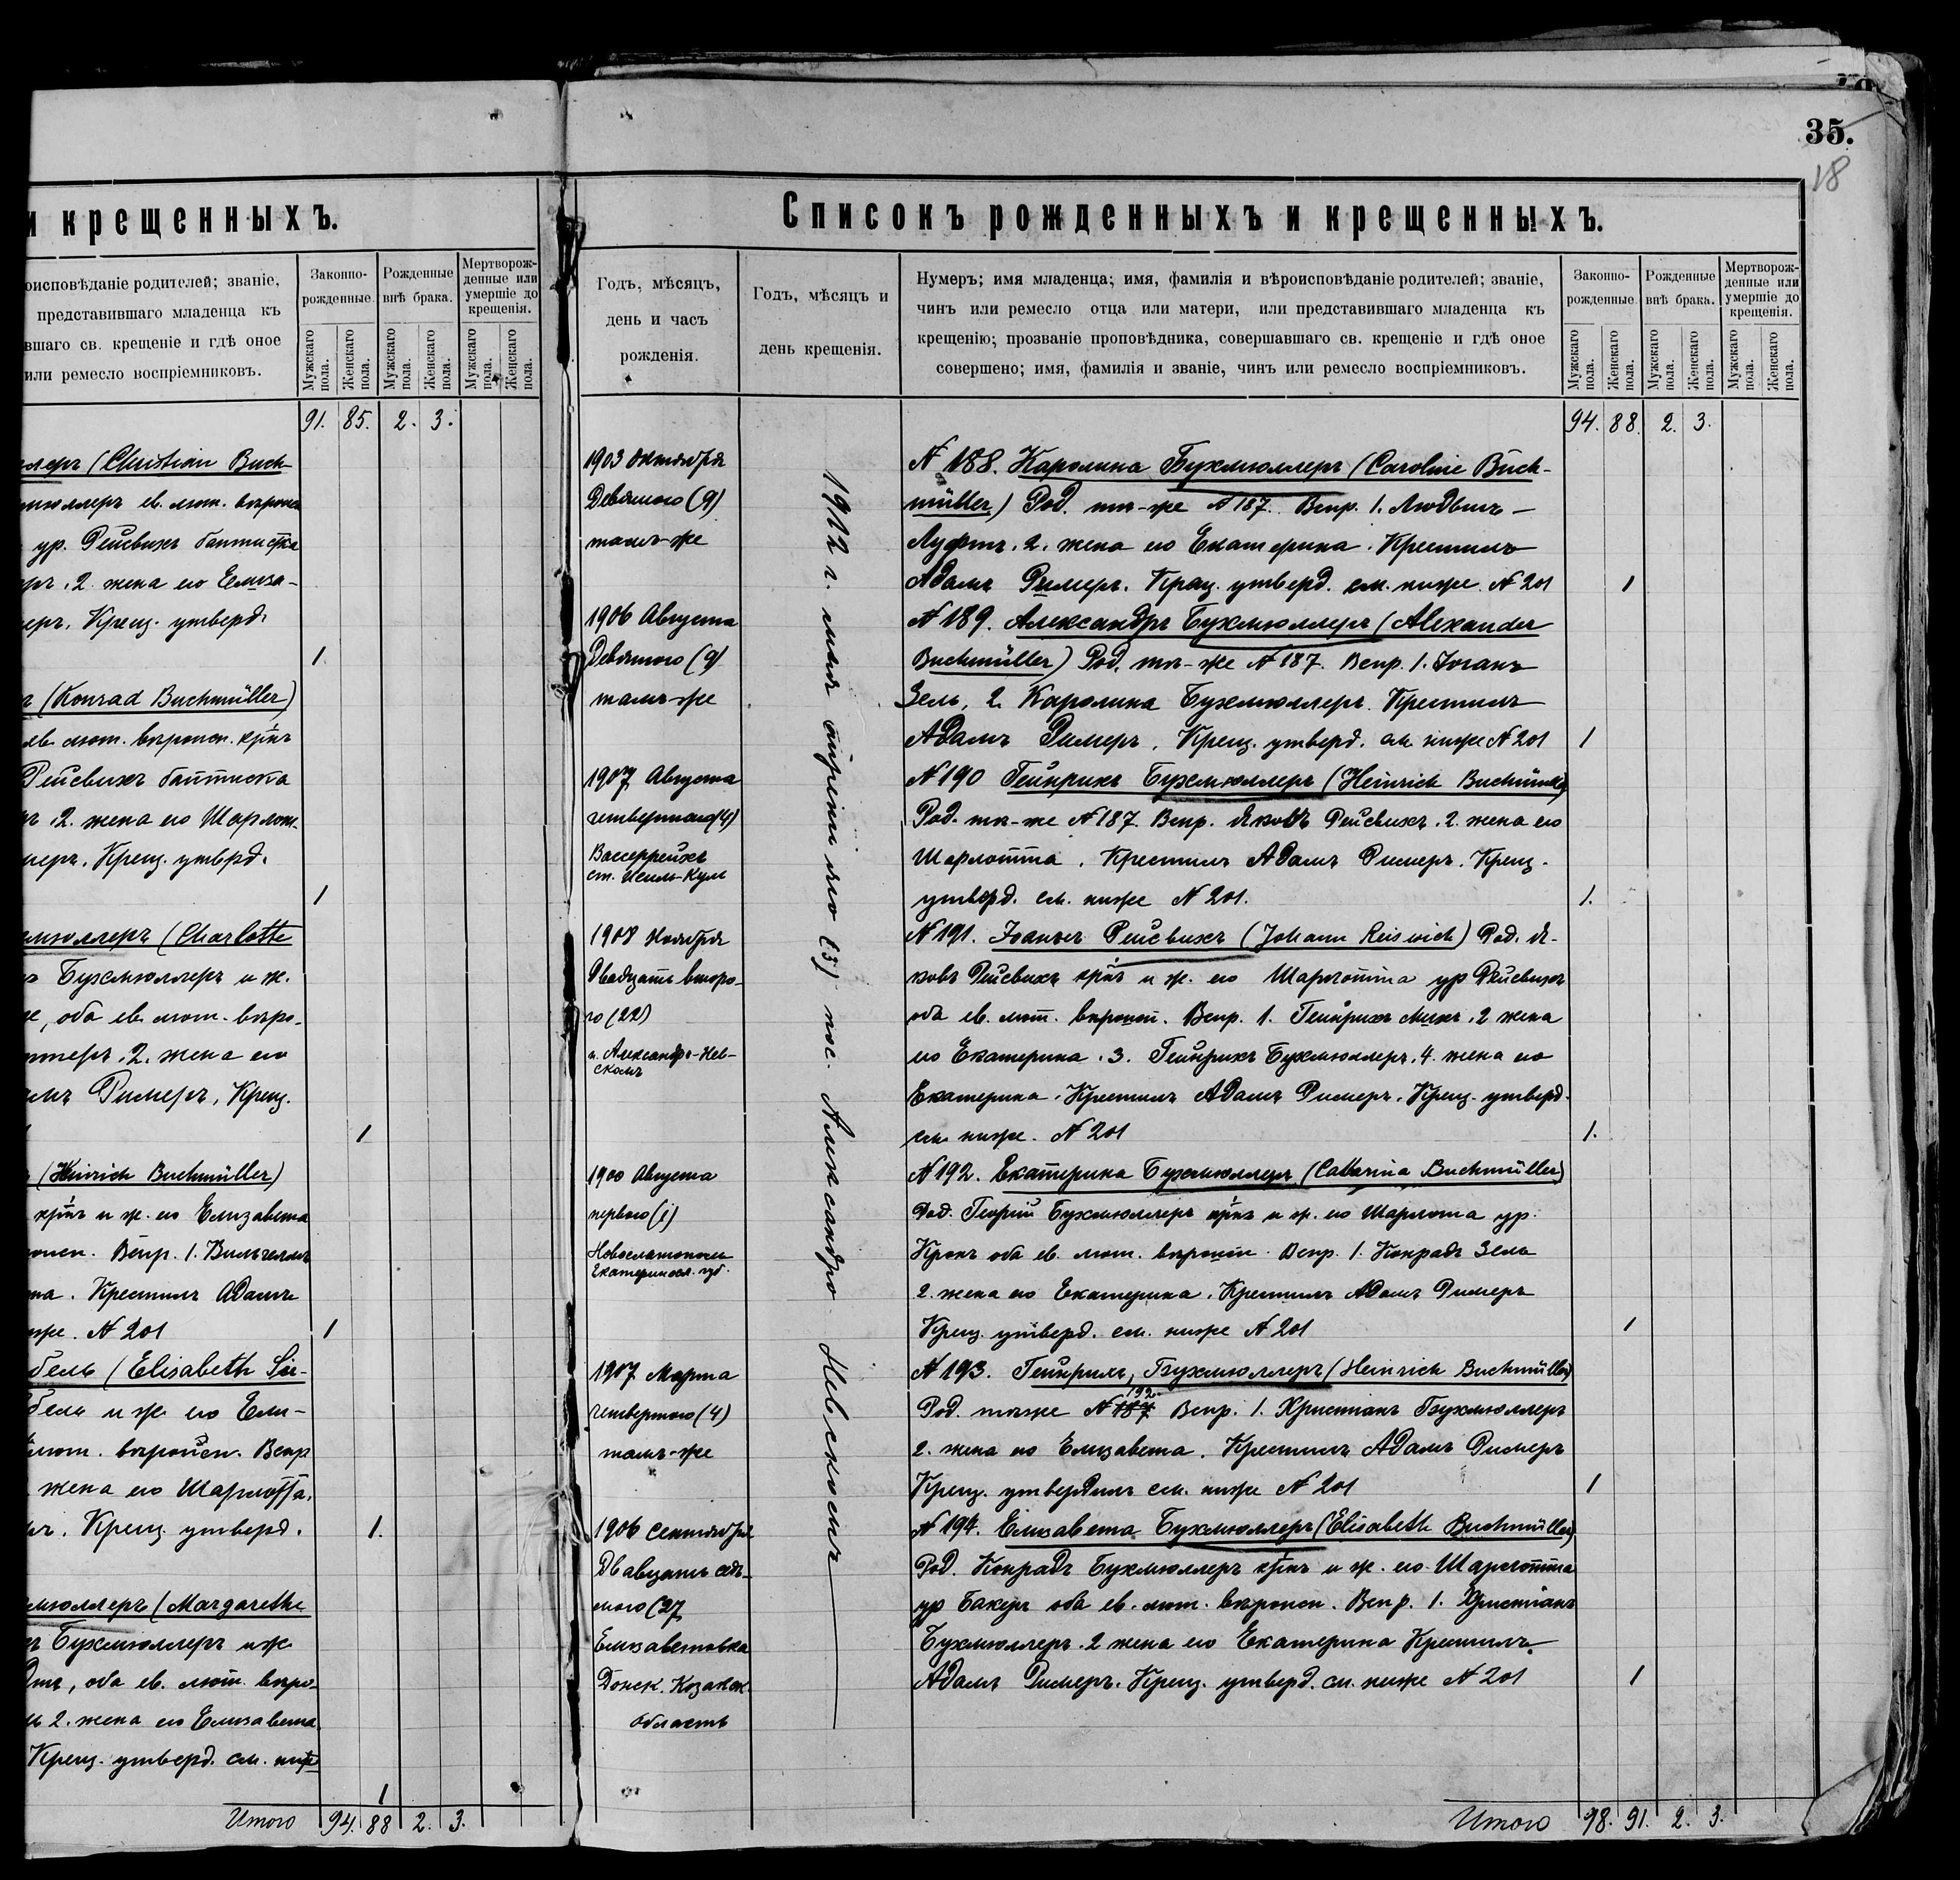 35.
18
и крещенныхъ.
оисповѣданіе родителей; званіе,
представившаго младенца къ
вшаго св. крещеніе и гдѣ оное
или ремесло воспріемниковъ.
Законно-
рожденные.
Рожденные
внѣ брака.
Мертворож-
денные или
умершіе до
крещенія.
Мужскаго пола.
Женскаго пола.
Мужскаго пола.
Женскаго пола.
Мужскаго пола.
Женскаго пола.
91. 85. 2. 3.
леръ (Christian Buch-
мюллеръ ев. лют. вѣроисп
ур. Рейсвихъ баптистка
2. жена его Елиза-
Крещ. утверд.
1.
(Konrad Buchmüller)
ев. лют. вѣроисп. крнъ
Рейсвихъ баптистка
2. жена его Шарлот-
Крещ. утверд.
1
мюллеръ (Charlotte
Бухмюллеръ и ж.
оба ев. лют. вѣро-
2. жена его
Римеръ, Крещ.
1
(Heinrich Buchmüller)
крнъ и ж. его Елизавета
Вспр. 1. Вильгельмъ
Крестилъ Адамъ
ниже. № 201
1
бель (Elisabeth Sie-
бель и ж. его Ели-
лют. вѣроисп. Вспр
жена его Шарлотта.
Крещ. утверд.
1.
мюллеръ (Margarethe
Бухмюллеръ и ж.
оба ев. лют. вѣро-
2. жена его Елизавета.
Крещ. утверд. см. ниже
1
Итого 94. 88 2. 3.
Списокъ рожденныхъ и крещенныхъ.
Годъ, мѣсяцъ,
день и часъ
рожденія.
Годъ, мѣсяцъ и
день крещенія.
Нумеръ; имя младенца; имя, фамилія и вѣроисповѣданіе родителей; званіе,
чинъ или ремесло отца или матери, или представившаго младенца къ
крещенію; прозваніе проповѣдника, совершавшаго св. крещеніе и гдѣ оное
совершено; имя, фамилія и званіе, чинъ или ремесло воспріемниковъ.
Законно-
рожденные.
Рожденные
внѣ брака.
Мертворож-
денные или
умершіе до
крещенія.
Мужскаго пола.
Женскаго пола.
Мужскаго пола.
Женскаго пола.
Мужскаго пола.
Женскаго пола.
94. 88. 2. 3.
1922 г. мая третьяго (3) пос. Александро Невскомъ
1903 Октября
Девятого (9)
тамъ-же
№ 188. Каролина Бухмюллеръ (Caroline Buch-
müller) Род. тѣ-же № 187. Вспр. 1. Людвигъ
Луфтъ. 2. жена его Екатерина. Крестилъ
Адамъ Римеръ. Крещ. утверд. см. ниже № 201 1
1906 Августа
Девятого (9)
тамъ-же
№ 189. Александръ Бухмюллеръ (Alexander
Buchmüller) Род. тѣ-же № 187. Вспр. 1. Іоганъ
Зель, 2. Каролина Бухмюллеръ. Крестилъ
Адамъ Римеръ. Крещ. утверд. см. ниже № 201 1
1907 Августа
четвертого (4)
Вассеррейхъ
ст. Исиль-Куль
№ 190 Гейнрихъ Бухмюллеръ (Heinrich Buchmüller)
Род. тѣ-же № 187. Вспр. Яковъ Рейсвихъ. 2. жена его
Шарлотта. Крестилъ Адамъ Римеръ. Крещ.
утверд. см. ниже № 201. 1.
1908 Ноября
Двадцать второ-
го (22)
п. Александро-Нев-
скомъ
№ 191. Іоганъ Рейсвихъ (Johann Reiswich) Род. Я-
ковъ Рейсвихъ крнъ и ж. его Шарлотта ур Рейсвихъ
оба ев. лют. вѣроисп. Вспр. 1. Гейнрихъ Михъ, 2 жена
его Екатерина. 3. Гейнрихъ Бухмюллеръ. 4. жена его
Екатерина. Крестилъ Адамъ Римеръ. Крещ. утверд.
см. ниже. № 201 1.
1900 Августа
первого (1)
Екатеринос. губ.
№ 192. Екатерина Бухмюллеръ (Catharina Buchmüller)
Род. Георгій Бухмюллеръ крнъ и ж. его Шарлота ур.
Кронъ оба ев. лют. вѣроисп. Вспр. 1. Конрадъ Зель
2. жена его Екатерина. Крестилъ Адамъ Римеръ
Крещ. утверд. см. ниже № 201 1
1907 Марта
четвертого (4)
тамъ-же
№ 193. Гейнрихъ Бухмюллеръ (Heinrich Buchmüller)
192.
Род. тѣ-же № 187 Вспр. 1. Христіанъ Бухмюллеръ
2. жена его Елизавета. Крестилъ Адамъ Римеръ
Крещ. утвердилъ см. ниже № 201 1
1906 Сентября
Двадцать седь-
мого (27
Елизаветовка
Донск. Козацк
область
№ 194. Елизавета Бухмюллеръ (Elisabeth Buchmüller)
Род. Конрадъ Бухмюллеръ крнъ и ж. его Шарлотта
ур Бакеръ оба ев. лют. вѣроисп. Вспр. 1. Христіанъ
Бухмюллеръ. 2 жена его Екатерина Крестилъ
Адамъ Римеръ. Крещ. утверд. см. ниже № 201 1
Итого 98. 91. 2. 3.